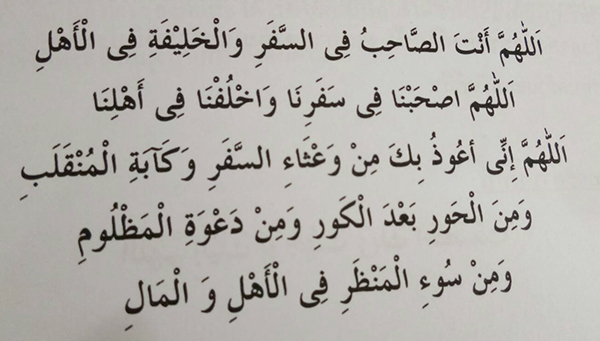 اَللّٰهُمَّ أَنْتَ الصَّاحِبُ فِى السَّفَرِ وَالْخَلِيْفَةِ فِى الْأَهْلِ
اَللّٰهُمَّ اصْحَبْنَا فِى سَفَرِنَا وَاخْلُفْنَا فِى أَهْلِنَا
اَللّٰهُمَّ إِنِّى أَعُوذُ بِكَ مِنْ وَعْثَاءِ السَّفَرِ وَكَآبَةِ الْمُنْقَلَبِ
وَمِنَ الْحَورِ بَعْدَ الْكَورِ وَمِنْ دَعْوَةِ الْمَظْلُومِ
وَمِنْ سُوءِ الْمَنْظَرِ فِى الْأَهْلِ وَ الْمَالِ